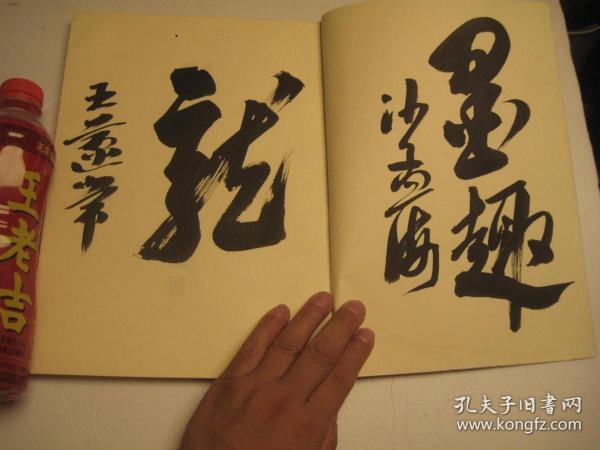 墨趣
沙孟海
龍
王蘧常
展
王老吉
孔夫子旧書网
www.kongfz.com